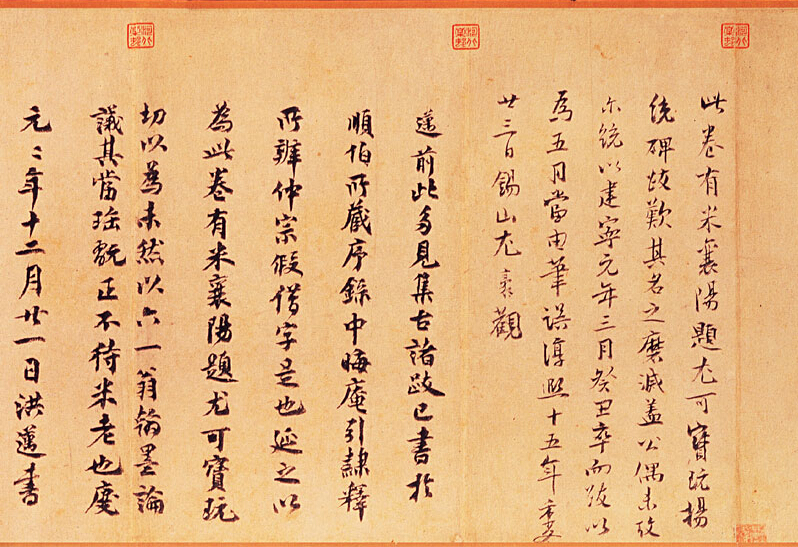 此卷有米襄陽題尤可寶玩揚
統碑跋歎其名之磨滅蓋公偶未攷
尓統以建寧元年三月癸丑卒而跋以
為五月當由筆誤淳熙十五年
廿三日錫山尤袤觀
邁前此多見集古諸跋已書於
順伯所藏序錄中晦庵引隸釋
所辯仲宗假借字是也延之以
為此卷有米襄陽題尤可寶玩
切以為未然以六一翁翰墨論
議其當瑤翫正不待米老也慶
元〻年十二月廿一日洪邁書